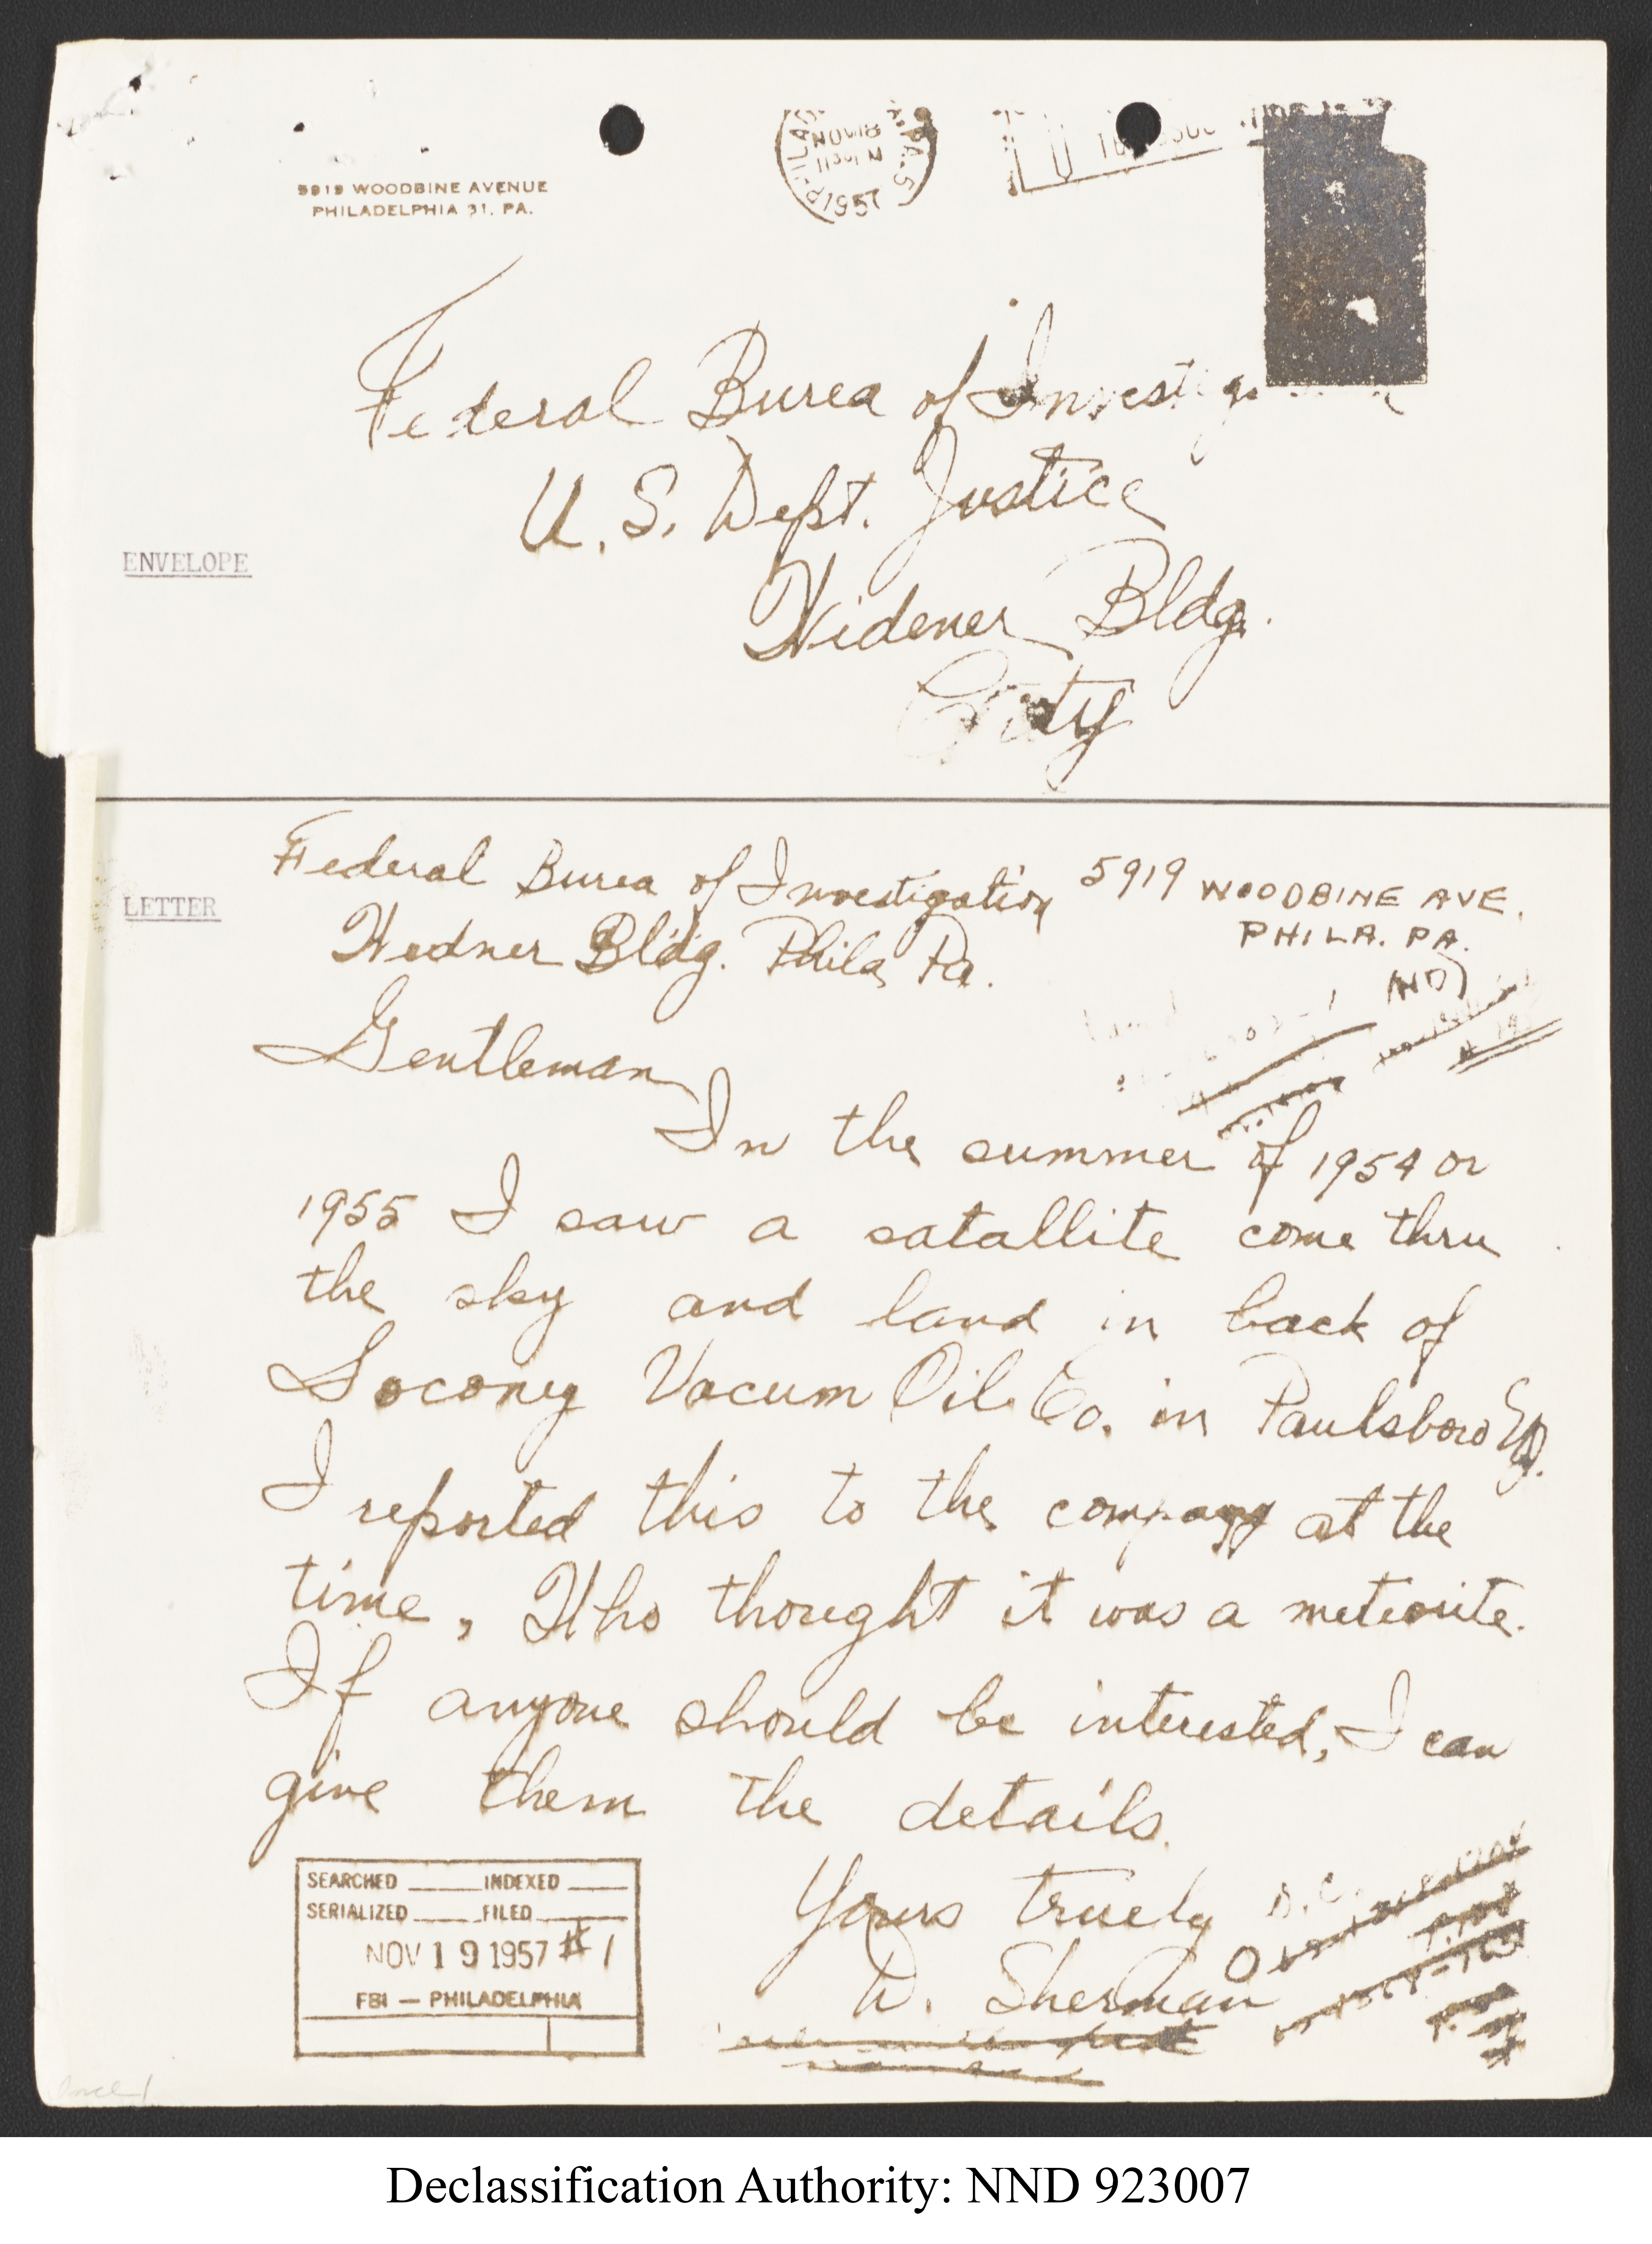 PHILA
PA. 5
NOV 18
1957
5919 WOODBINE AVENUE
PHILADELPHIA 31, PA.
Federal Burea of Investig
U.S. Dept. Justice
ENVELOPE
Widener Bldg.
City
LETTER
Federal Burea of Investigation
5919 WOODBINE AVE.
PHILA. PA.
Wedner Bldg. Phila Pa.
Gentleman
In the summer of 1954 or
1955 I saw a satallite come thru
the sky and land in back of
Socony Vacum Oil Co. in Paulsboro NJ.
I reported this to the company at the
time, Who thought it was a meteorite.
If anyone should be interested, I can
give them the details.
Yours truely
W. Sherman
SEARCHED ____ INDEXED ____
SERIALIZED ____ FILED ____
NOV 19 1957 #1
FBI — PHILADELPHIA
Declassification Authority: NND 923007